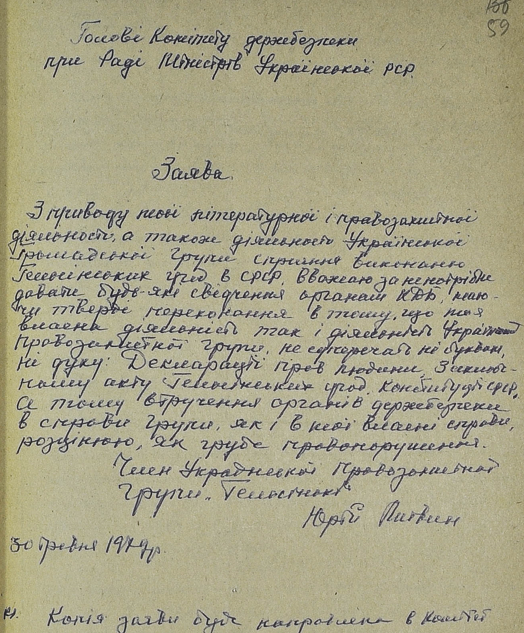 59
Голові Комітету держбезпеки
при Раді Міністрів Української РСР.
Заява.
З приводу моєї літературної і правозахитної
діяльності, а також діяльності Української
громадської групи сприяння виконанню
Гельсінських угод в СРСР. Вважаю за непотрібне
давати будь-які свідчення органам КДБ, маю-
чи тверде переконання в тому, що моя
власна діяльність так і діяльність Української
Правозахитної групи, не суперечать ні букві,
ні духу: Декларації прав людини, Заключ-
ному акту Гельсінських угод, Конституції СРСР,
А тому втручення органів держбезпеки
в справи групи, як і в мої власні справи,
розцінюю, як грубе правопорушення.
Член Української Правозахитної
групи „Гельсінські"
Юрій Литвин
30 травня
Копія заяви буде направлена в Комітет